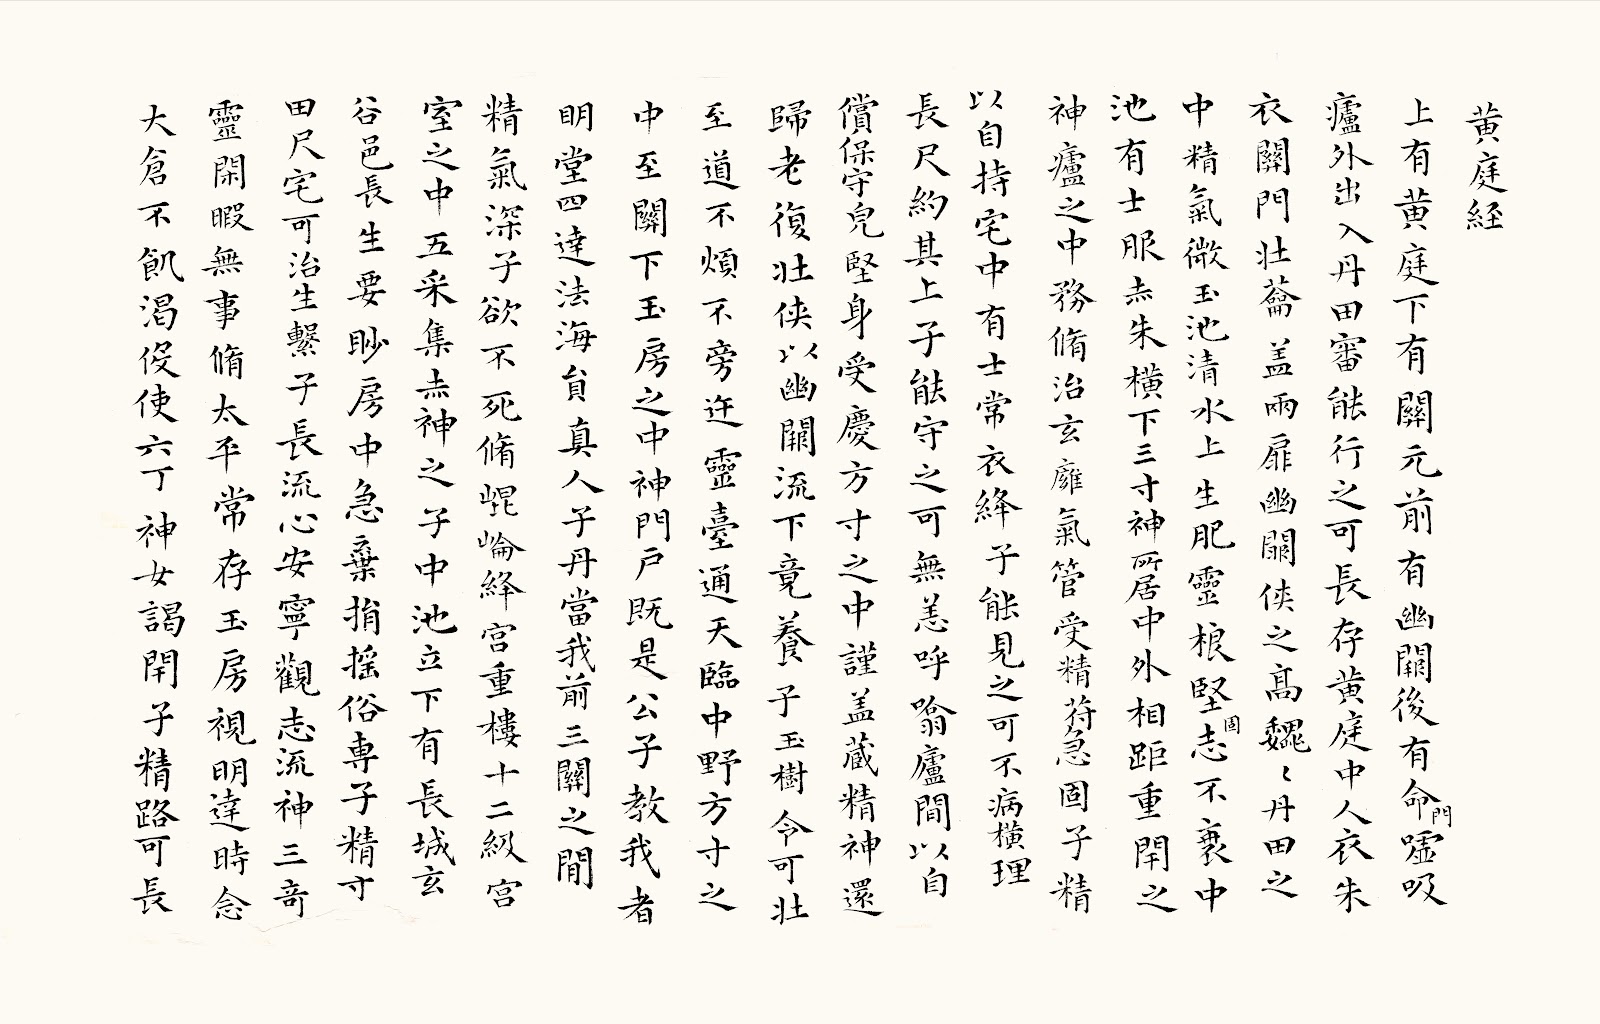 黄庭経
上有黄庭下有關元前有幽闕後有命門噓吸
廬外出入丹田審能行之可長存黄庭中人衣朱
衣關門壮蘥盖兩扉幽闕俠之髙魏〻丹田之
中精氣微玉池清水上生肥靈根堅固志不衰中
池有士服赤朱横下三寸神所居中外相距重閇之
神廬之中務脩治玄廱氣管受精苻急固子精
以自持宅中有士常衣絳子能見之可不病横理
長尺約其上子能守之可無恙呼噏廬間以自
償保守皃堅身受慶方寸之中謹盖蔵精神還
歸老復壮俠以幽闕流下竟養子玉樹令可壮
至道不煩不旁迕靈臺通天臨中野方寸之
中至關下玉房之中神門戸既是公子教我者
明堂四達法海貟真人子丹當我前三關之間
精氣深子欲不死脩崐崘絳宫重樓十二級宫
室之中五采集赤神之子中池立下有長城玄
谷邑長生要眇房中急棄捐搖俗専子精寸
田尺宅可治生繋子長流心安寧觀志流神三竒
靈閑暇無事脩太平常存玉房視明達時念
大倉不飢渇役使六丁神女謁閇子精路可長